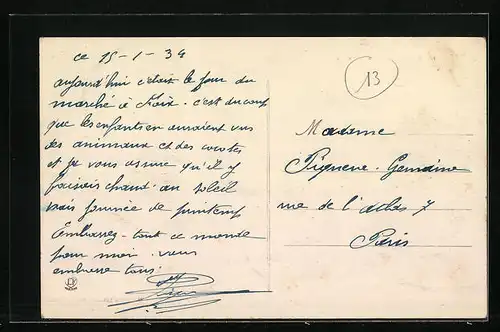 ce 15-1-34
aujourd'hui c'était le jour du
marché à c'est du coup
que les enfants en auraient vus
des animaux et des
et je vous assure qu'il y
faisais chaud au soleil
vrais journée de printemps
Embrassez tout ce monde
pour moi. vous
embrasse tous
13
Madame
Piqueue Germaine
rue de l' 7
Paris